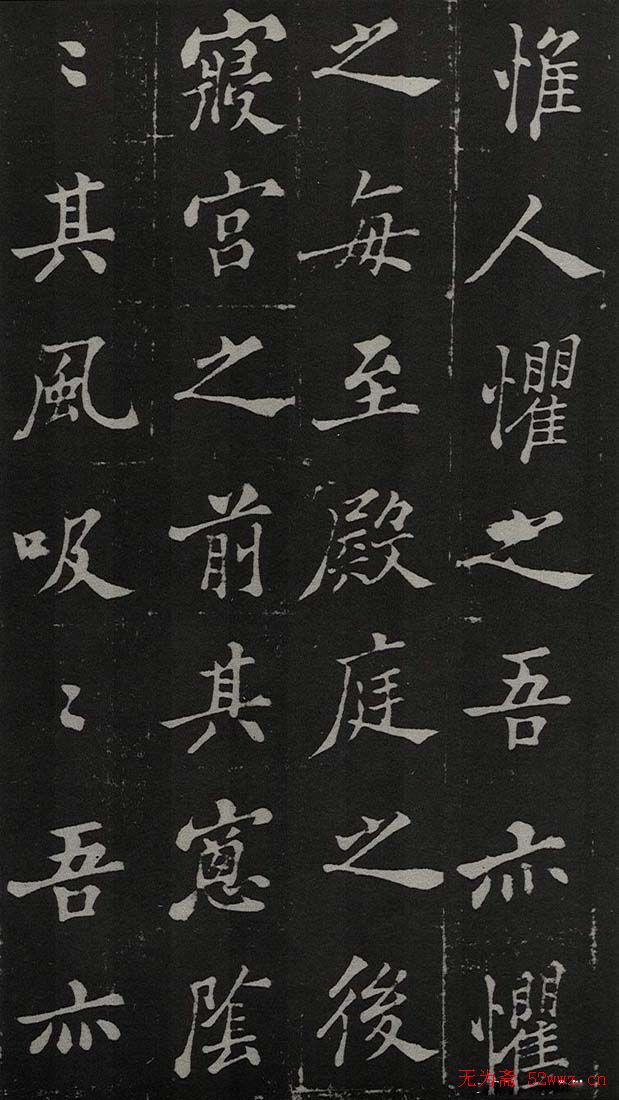 惟人懼之吾亦懼
之每至殿庭之後
寢宮之前其窻陰
〻其風吸〻吾亦
无为斋 52wwz.cn